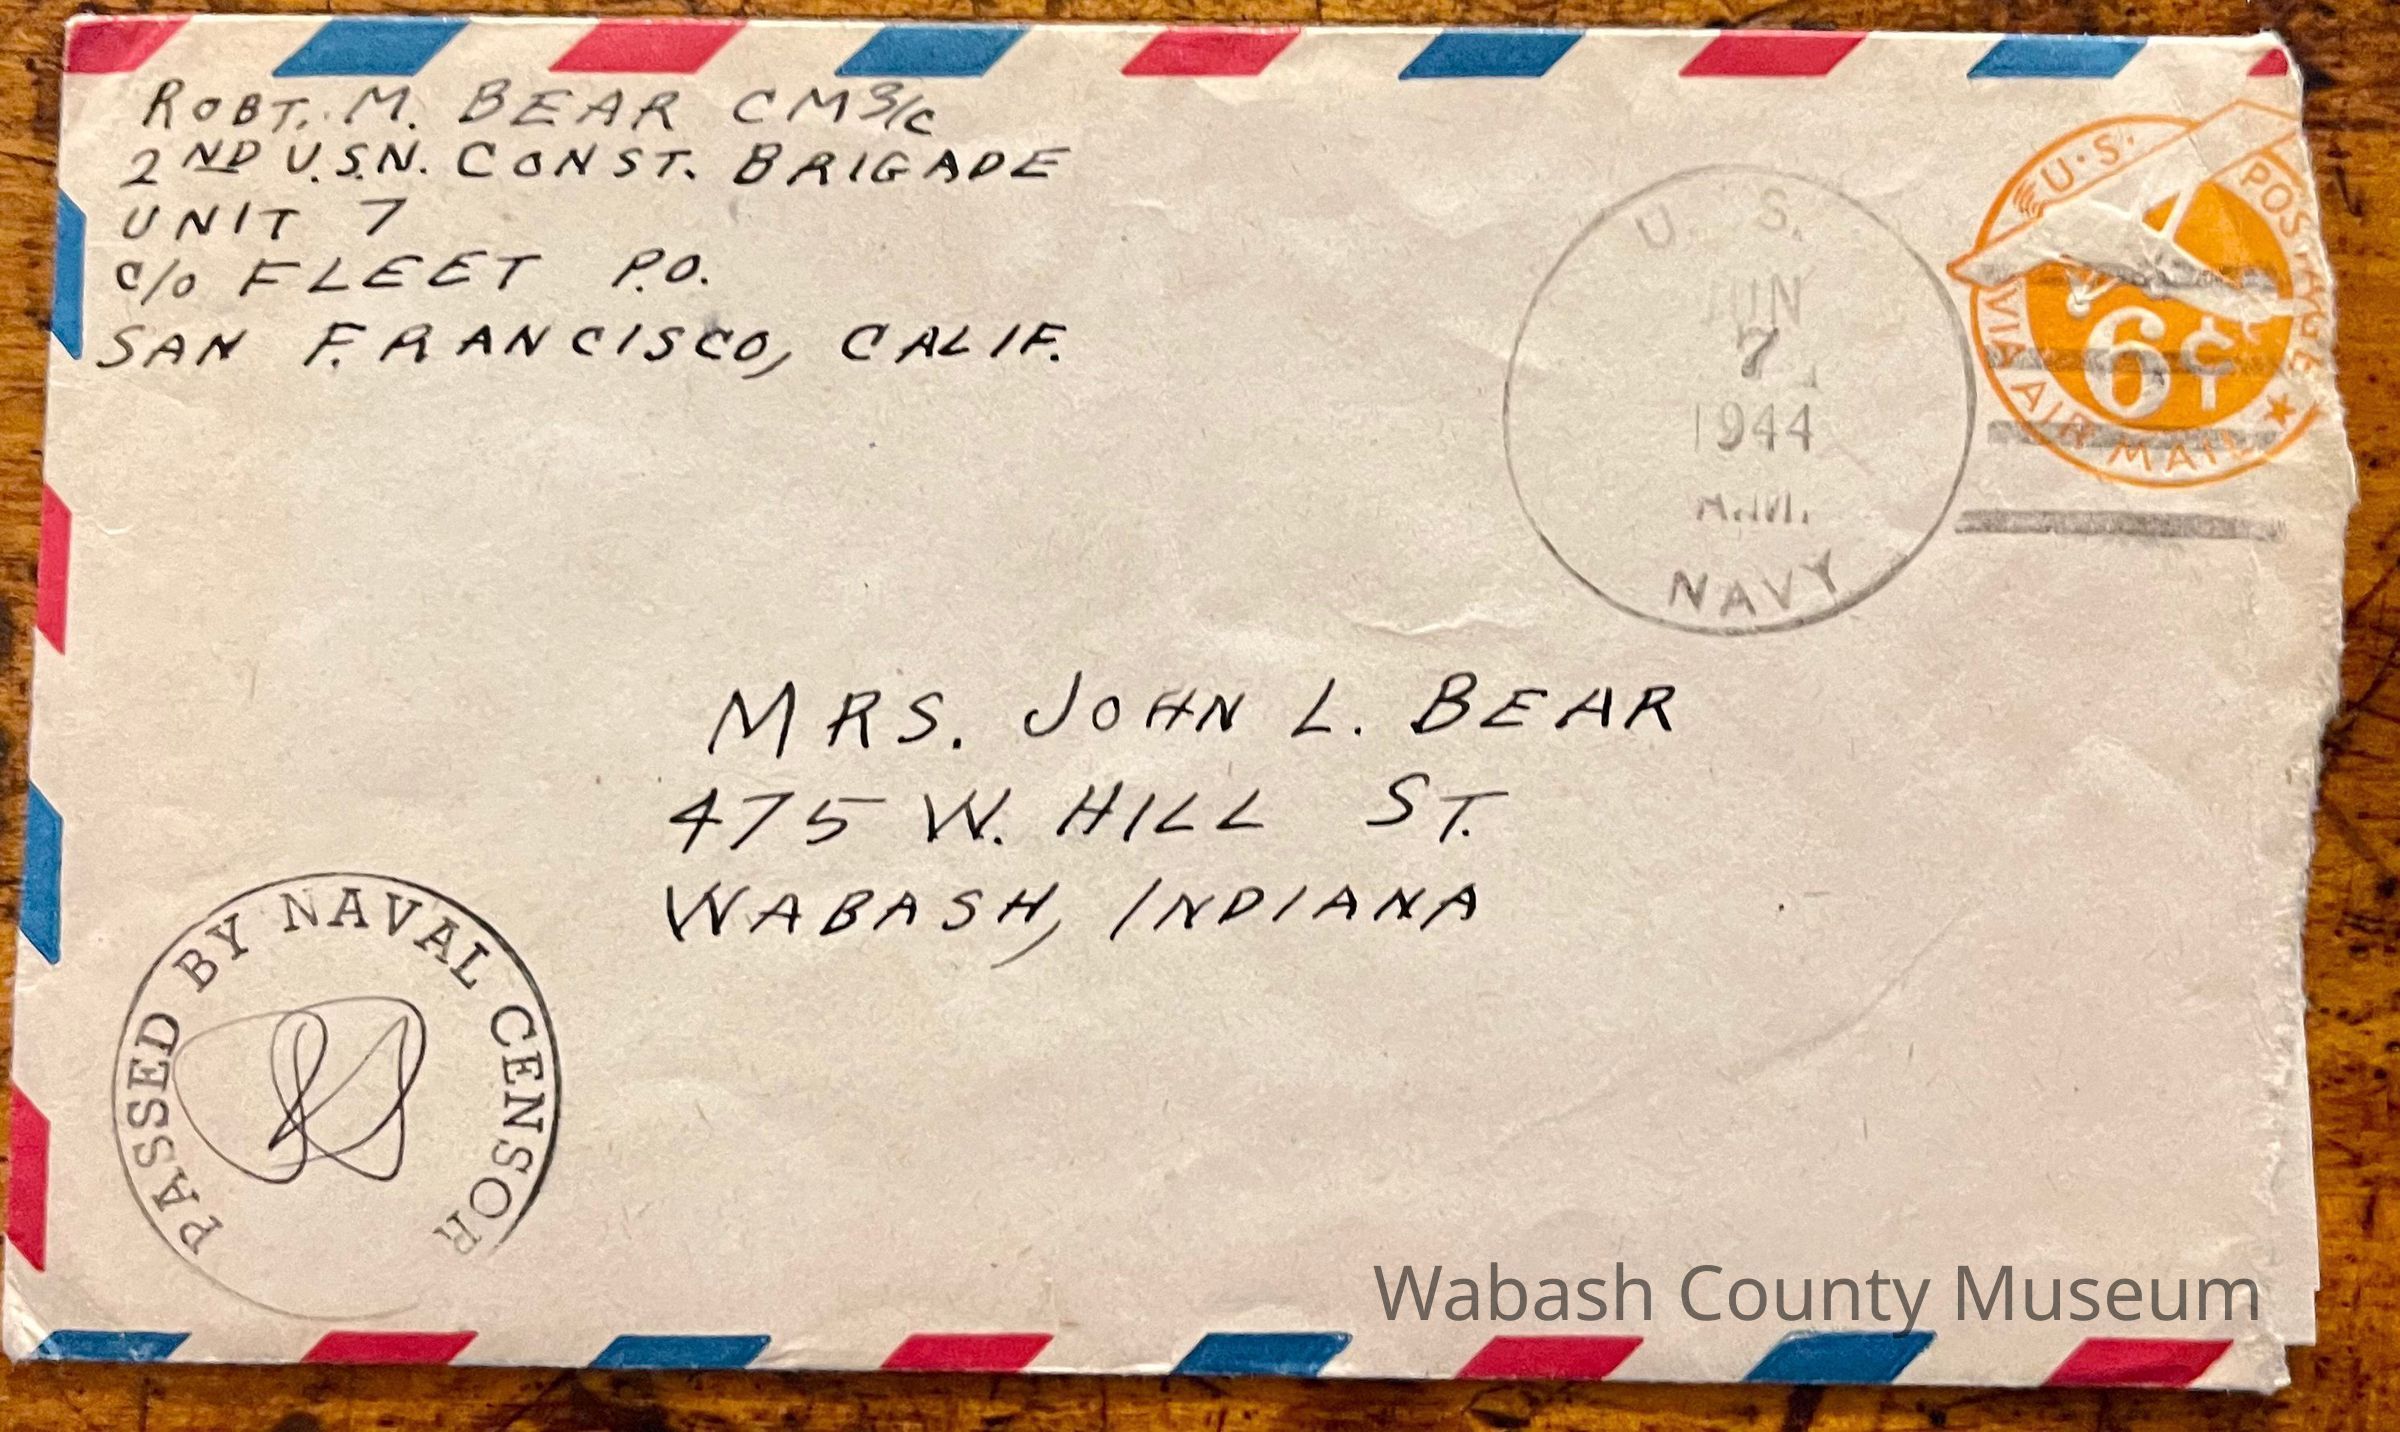 ROBT. M. BEAR CM3/C
2ND U.S.N. CONST. BRIGADE
UNIT 7
C/O FLEET P.O.
SAN FRANCISCO, CALIF.
U. S.
JUN
7
1944
A.M.
NAVY
U.S. POSTAGE
6¢
VIA AIR MAIL
MRS. JOHN L. BEAR
475 W. HILL ST.
WABASH, INDIANA
PASSED BY NAVAL CENSOR
Wabash County Museum